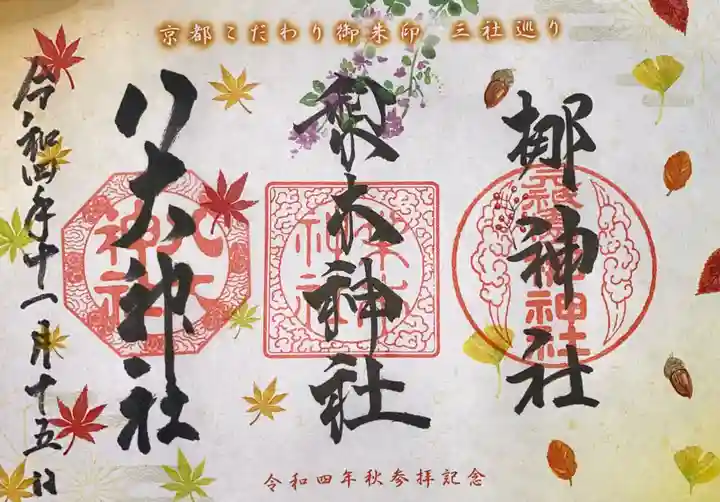 京都こだわり御朱印 三社巡り
梛神社
梨木神社
八大神社
令和四年十一月十五日
令和四年秋参拝記念